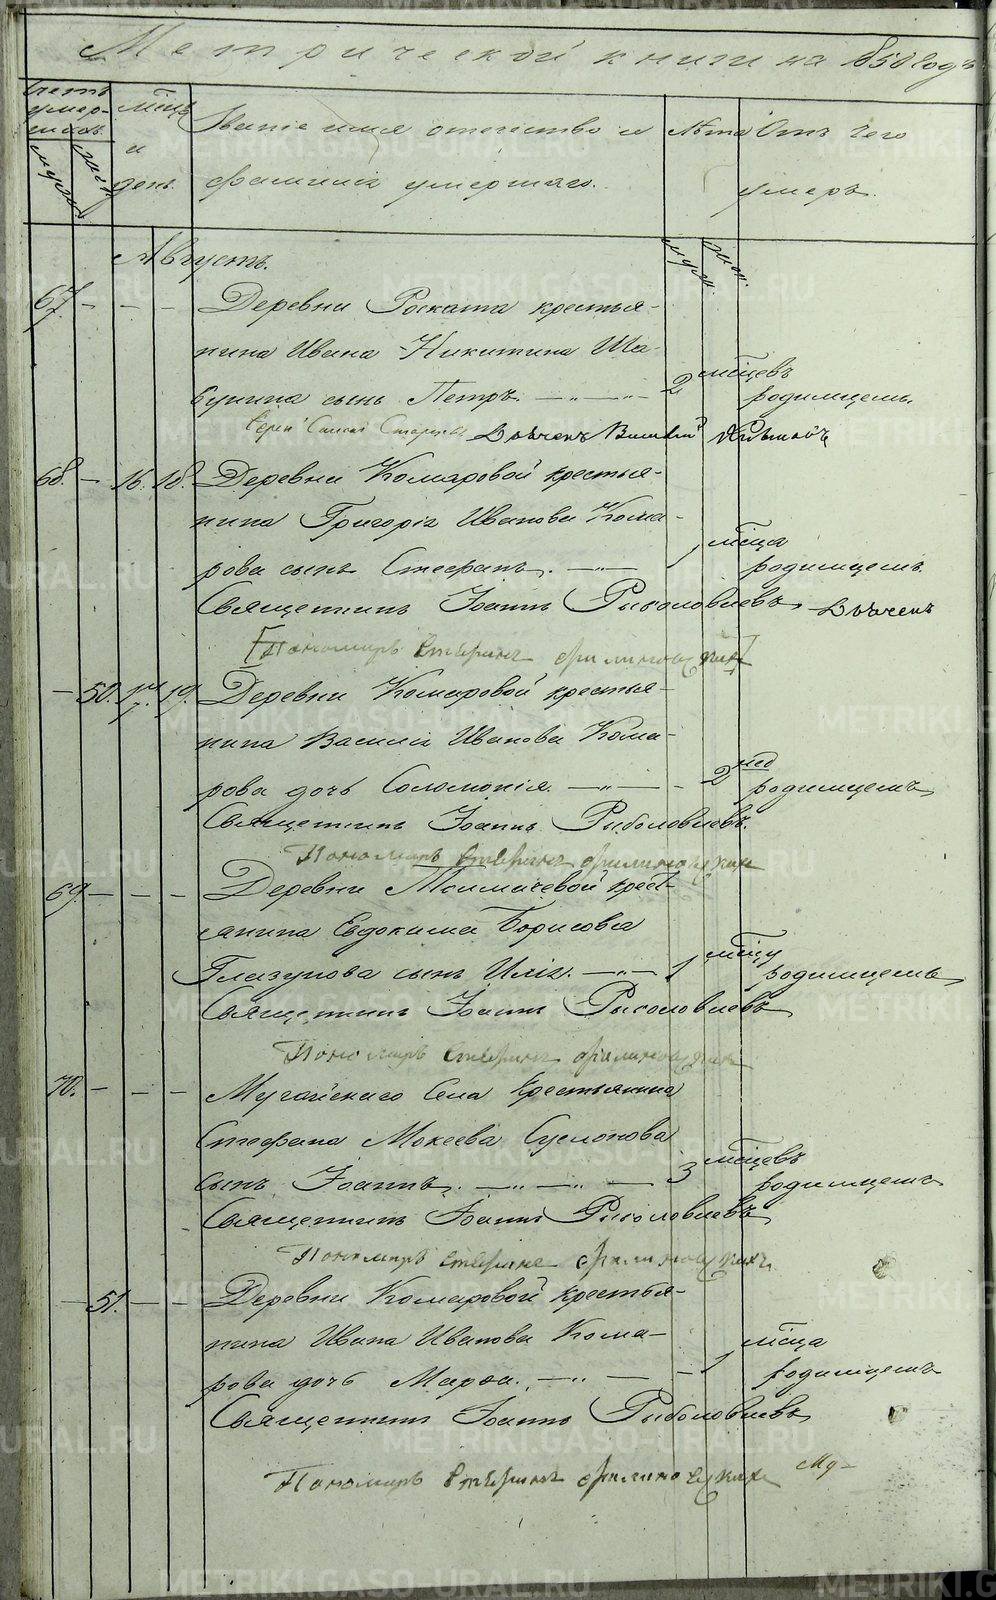 Метрической книги на 1850 годъ
Счетъ умер-
шихъ
муж. жен.
Мѣсяцъ и день.
Званіе имя отечество и
фамилія умершаго.
Лѣта
муж. жен.
Отъ чего
умеръ.
Августъ.
67. — — — Деревни Роската крестья-
нина Ивана Никитина Ша-
бунина сынъ Петръ. — „ — „ — 2 мѣсяцевъ родимцемъ.
68. — 16. 18. Деревни Комаровой крестья-
нина Григорія Иванова Кома-
рова сынъ Стефанъ. — „ — 1 мѣсяца родимцемъ.
Священникъ Іоаннъ Рыболовлевъ Дьячекъ
Пономарь
— 50. 17. 19. Деревни Комаровой крестья-
нина Василія Иванова Кома-
рова дочь Соломонія. — „ — 2 нед родимцемъ
Священникъ Іоаннъ Рыболовлевъ.
Пономарь
69. — — — Деревни Толмачевой крест-
янина Евдокима Борисова
Глазунова сынъ Илія. — „ — 1 мѣсяцу родимцемъ
Священникъ Іоаннъ Рыболовлевъ
Пономарь
70. — — — Мугайскаго Села крестьянина
Стефана Мокеева Суслонова
сынъ Іоаннъ. — „ — „ — 3 мѣсяцевъ родимцемъ
Священникъ Іоаннъ Рыболовлевъ
Пономарь
— 51. — — Деревни Комаровой крестья-
нина Ивана Иванова Кома-
рова дочь Марѳа. — „ — — 1 мѣсяца родимцемъ
Священникъ Іоаннъ Рыболовлевъ
Пономарь
METRIKI.GASO-URAL.RU